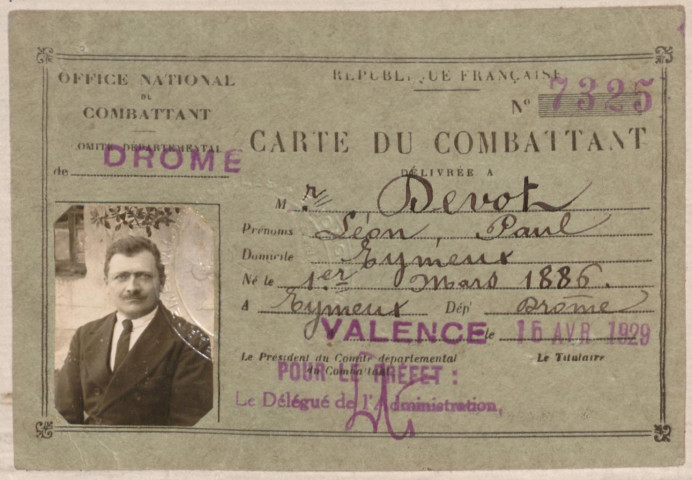 OFFICE NATIONAL
DU
COMBATTANT
COMITÉ DÉPARTEMENTAL
de DROME
RÉPUBLIQUE FRANÇAISE
N° 7325
CARTE DU COMBATTANT
DÉLIVRÉE A
M r Devot
Prénoms Léon, Paul
Domicile Eymeux
Né le 1er Mars 1886.
A Eymeux Dépt Drôme
VALENCE le 15 AVR 1929
Le Président du Comité départemental
du Combattant
Le Titulaire
POUR LE PRÉFET :
Le Délégué de l'Administration,